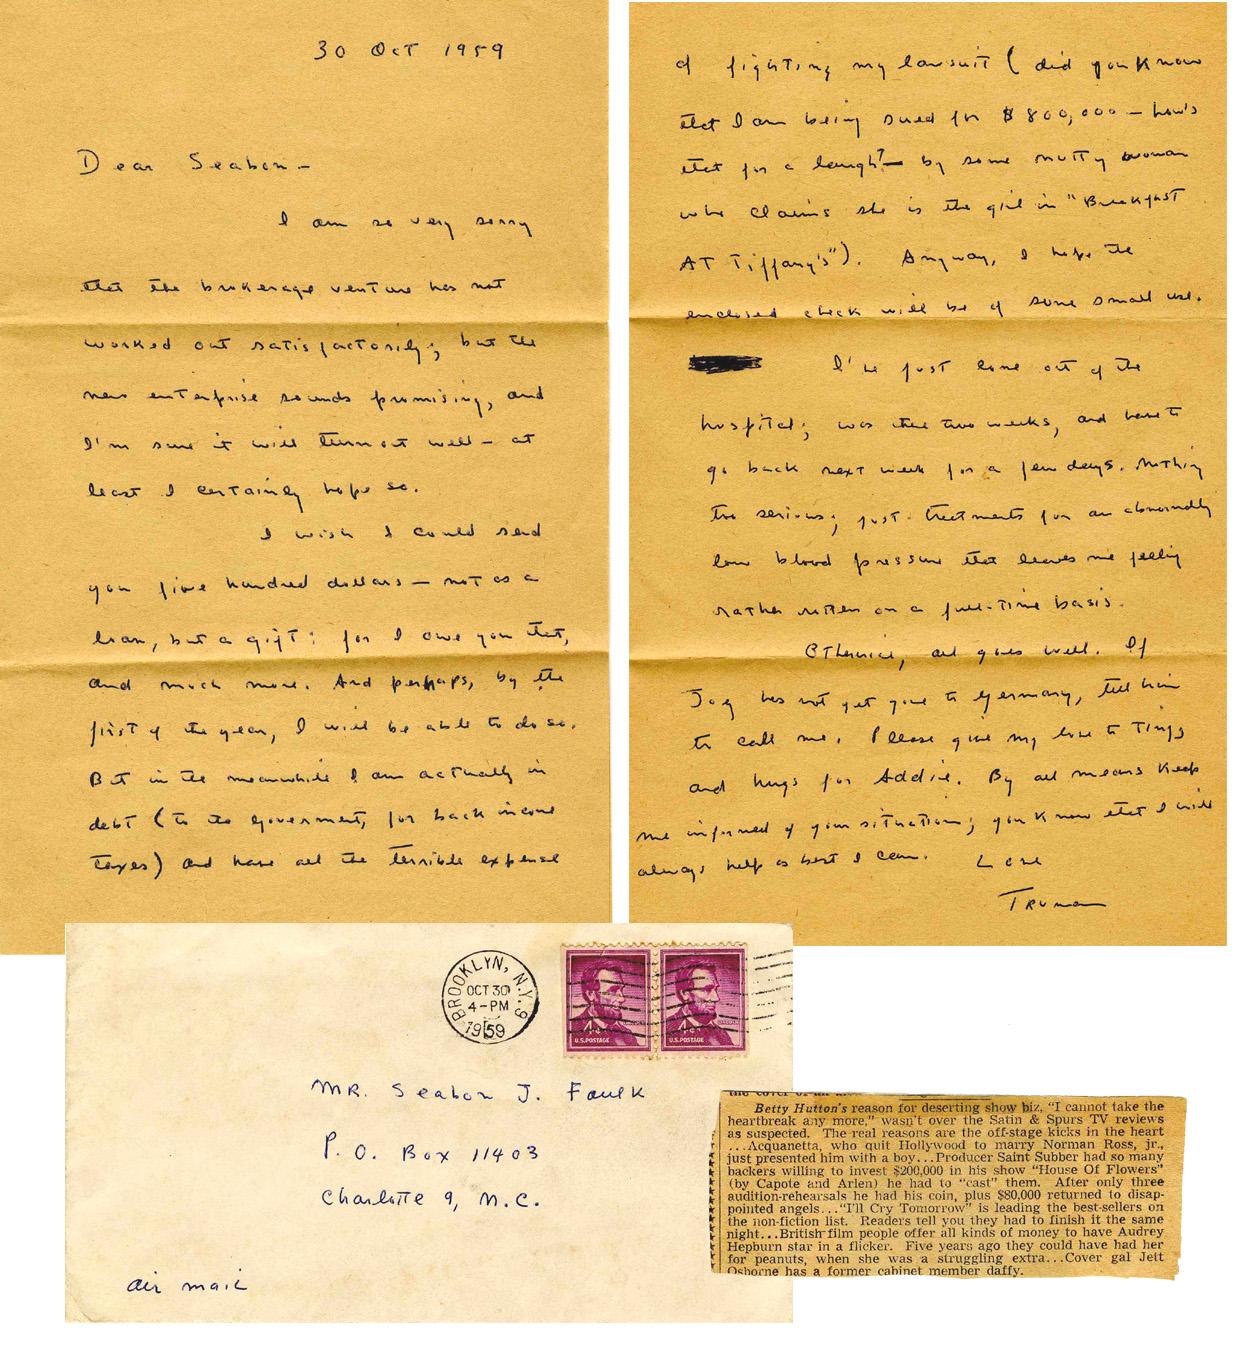 30 Oct 1959
Dear Seabon —
I am so very sorry
that the brokerage venture has not
worked out satisfactorily; but the
new enterprise sounds promising, and
I'm sure it will turn out well — at
least I certainly hope so.
I wish I could send
you five hundred dollars — not as a
loan, but a gift: for I owe you that,
and much more. And perhaps, by the
first of the year, I will be able to do so.
But in the meanwhile I am actually in
debt (to the Goverment, for back income
taxes) and have all the terrible expense
of fighting my lawsuit (did you know
that I am being sued for $800,000 — how's
that for a laugh? — by some nutty woman
who claims she is the girl in "Breakfast
AT Tiffany's"). Anyway, I hope the
enclosed check will be of some small use.
I've just come out of the
hospital; was there two weeks, and have to
go back next week for a few days. Nothing
too serious; just treatments for an abnormally
low blood pressure that leaves me feeling
rather rotten on a full-time basis.
Otherwise, all goes well. If
Joey has not yet gone to Germany, tell him
to call me. Please give my love to
and hugs for Addie. By all means keep
me informed of your situation; you know that I will
always help as best I can. Love
Truman
BROOKLYN, N.Y. 9
OCT 30
4-PM
1959
4¢ 4¢
U.S. POSTAGE U.S. POSTAGE
MR. Seabon J. Faulk
P. O. Box 11403
Charlotte 9, N.C.
air mail
the cover of an
Betty Hutton's reason for deserting show biz, "I cannot take the
heartbreak any more," wasn't over the Satin & Spurs TV reviews
as suspected. The real reasons are the off-stage kicks in the heart
...Acquanetta, who quit Hollywood to marry Norman Ross, jr.,
just presented him with a boy...Producer Saint Subber had so many
backers willing to invest $200,000 in his show "House Of Flowers"
(by Capote and Arlen) he had to "cast" them. After only three
audition-rehearsals he had his coin, plus $80,000 returned to disap-
pointed angels..."I'll Cry Tomorrow" is leading the best-sellers on
the non-fiction list. Readers tell you they had to finish it the same
night...British film people offer all kinds of money to have Audrey
Hepburn star in a flicker. Five years ago they could have had her
for peanuts, when she was a struggling extra...Cover gal Jett
Osborne has a former cabinet member daffy.